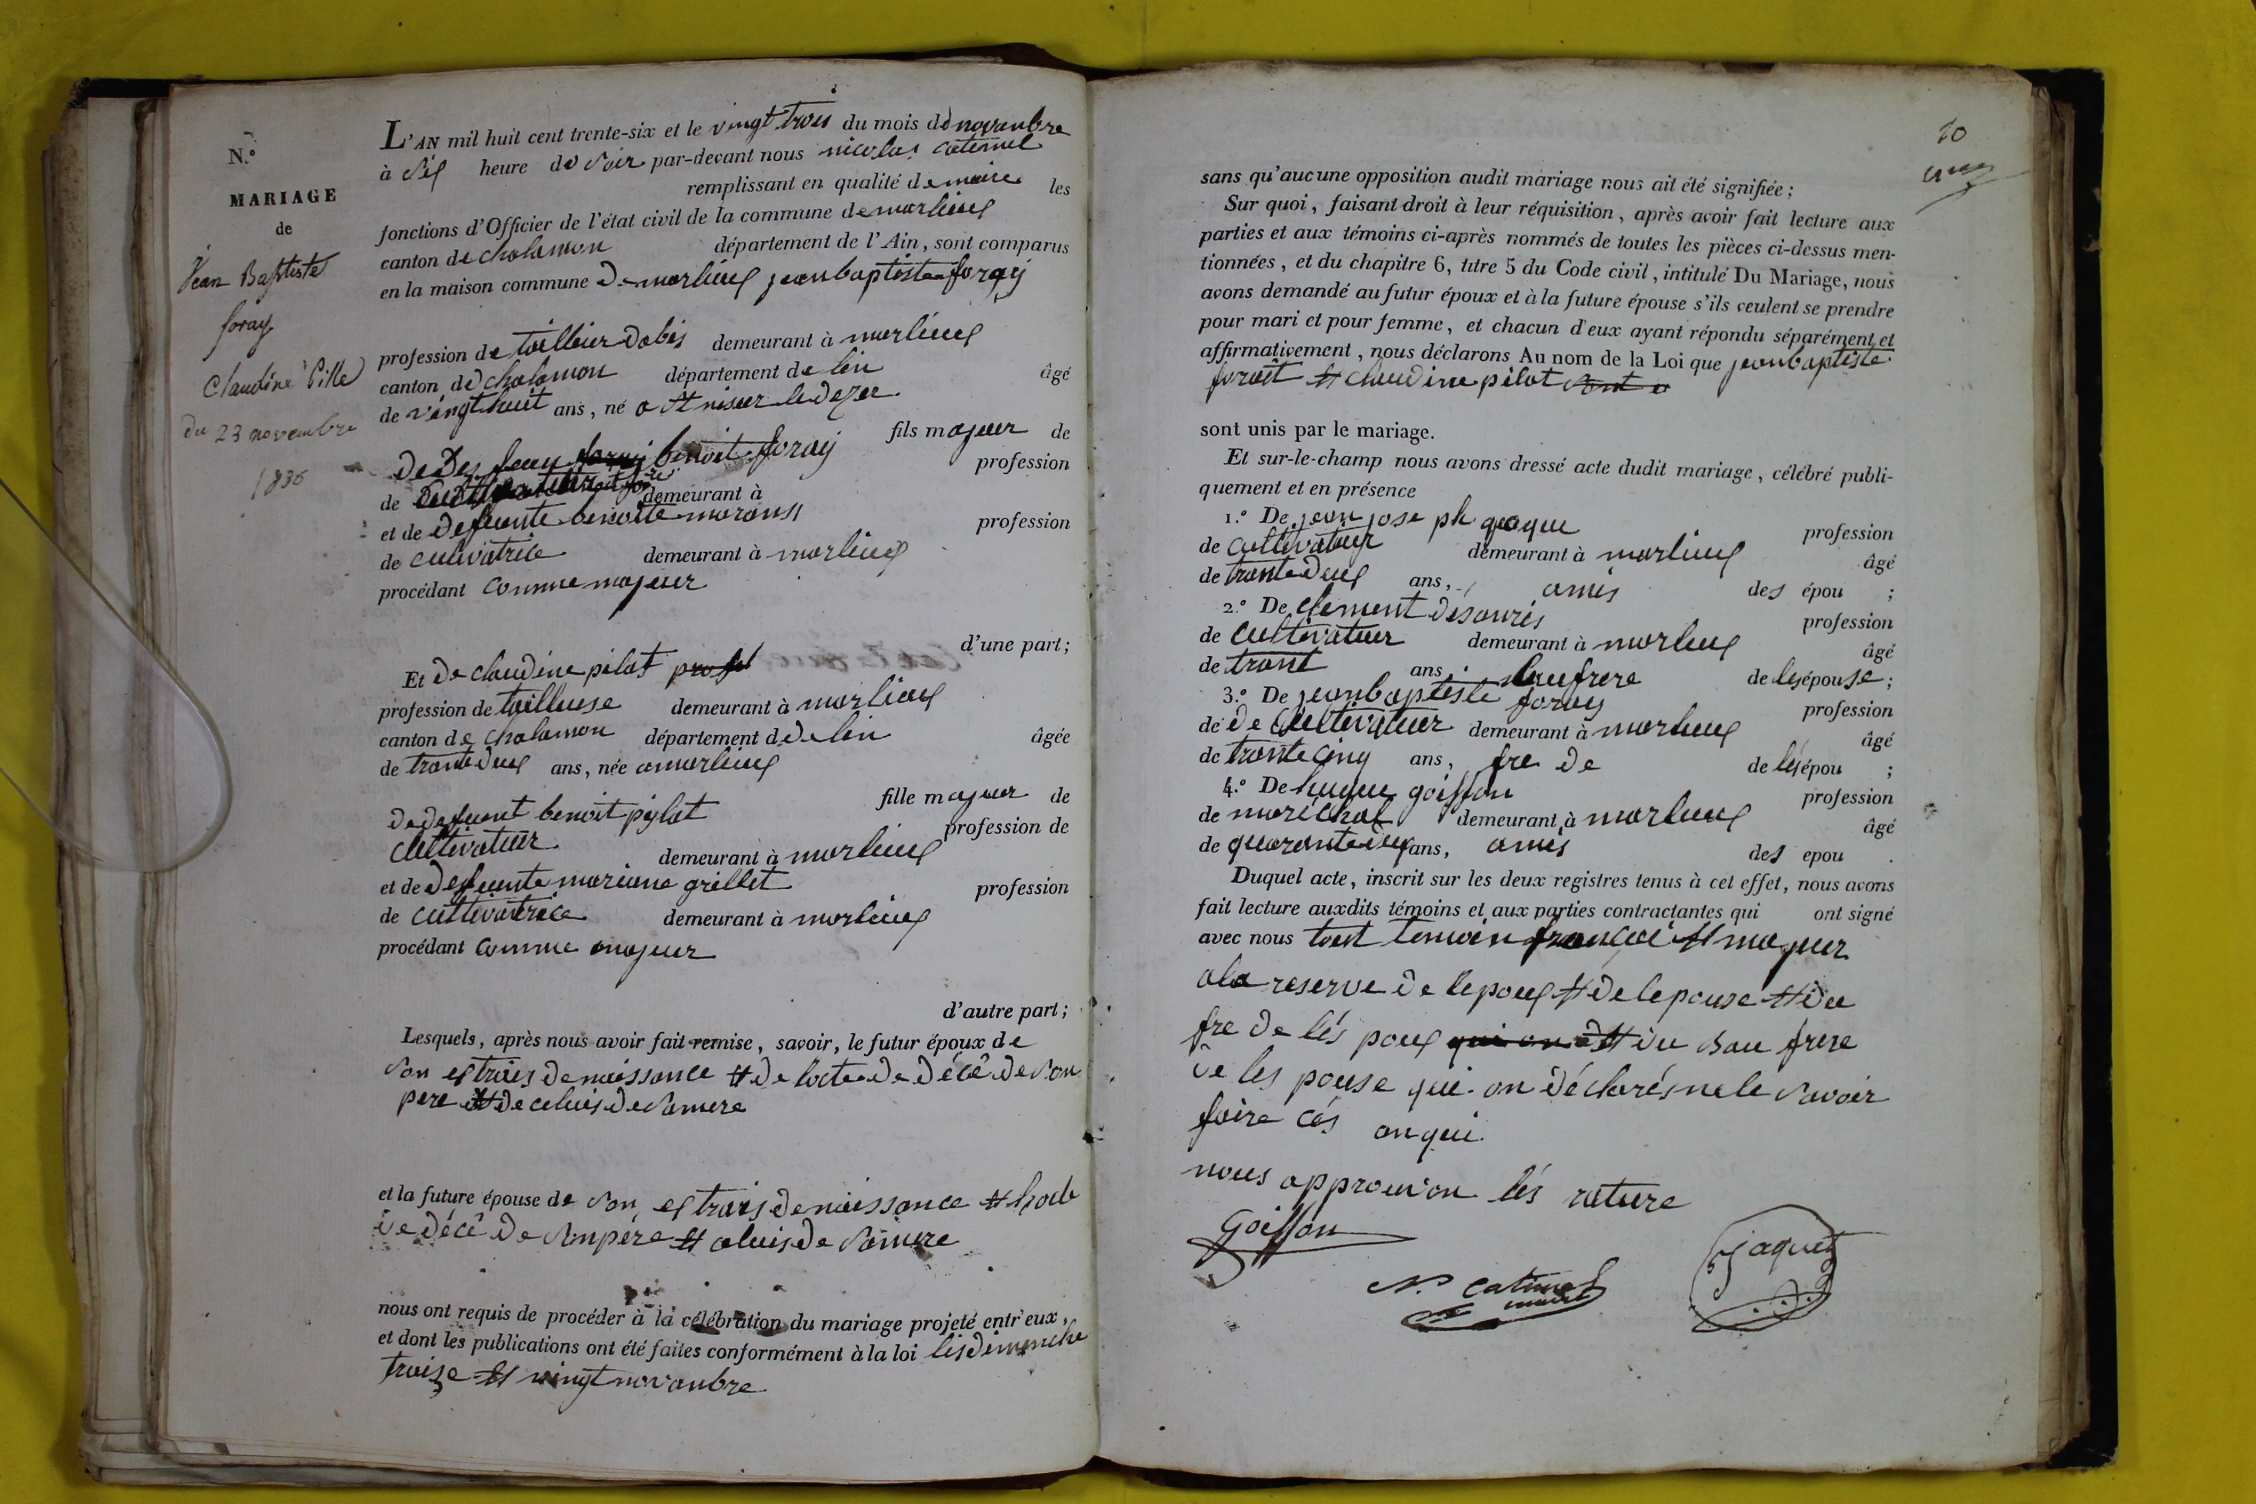 N.°
MARIAGE
de
Jean Baptiste
foray
Claudine Pille
du 23 novembre
1836
L'AN mil huit cent trente-six et le vingt trois du mois de novanbre
à sis heure du soir par-devant nous nicolas catimel
remplissant en qualité de maire les
fonctions d'Officier de l'état civil de la commune de marlieux
canton de chalamon département de l'Ain, sont comparus
en la maison commune de marlieux jean baptiste foray
profession de taillieur dabis demeurant à marlieux
canton de chalamon département de lin âgé
de vingt huit ans, né a st nisier le deser
fils majeur de
de Des feau foray benoit foray profession
de demeurant à
et de defuente benoite morans profession
de culivatrice demeurant à marlieux
procédant comme majeur
d'une part;
Et de claudine pilat prof
profession de tailleuse demeurant à marlieux
canton de chalamon département d de lin âgée
de trante deux ans, née a marlieux
fille majeur de
de defuent benoit pilat profession de
cultivateur demeurant à marlieux
et de defuente mariane grillet profession
de cultivatrice demeurant à marlieux
procédant comme majeur
d'autre part;
Lesquels, après nous avoir fait remise, savoir, le futur époux de
son extrais de naissance et de lacte de décê de son
pere et de celuis de samere
et la future épouse de son extrais de naissance et lacte
de décê de son père et celuis de samere
nous ont requis de procéder à la célébration du mariage projeté entr'eux,
et dont les publications ont été faites conformément à la loi les dimanche
traize et vingt novanbre
20
sans qu'aucune opposition audit mariage nous ait été signifiée;
Sur quoi, faisant droit à leur réquisition, après avoir fait lecture aux
parties et aux témoins ci-après nommés de toutes les pièces ci-dessus men-
tionnées, et du chapitre 6, titre 5 du Code civil, intitulé Du Mariage, nous
avons demandé au futur époux et à la future épouse s'ils veulent se prendre
pour mari et pour femme, et chacun d'eux ayant répondu séparément et
affirmativement, nous déclarons Au nom de la Loi que jean baptiste
forait et claudine pilat sont u
sont unis par le mariage.
Et sur-le-champ nous avons dressé acte dudit mariage, célébré publi-
quement et en présence
1.° De jean jose ph jaque profession
de cultivateur demeurant à marlieux âgé
de trante deux ans, amis des épou ;
2.° De clement désauris profession
de cultivateur demeurant à marlieux âgé
de trant ans, beufrere de lesépouse;
3.° De jean baptiste foray profession
de de cultivateur demeurant à marlieux âgé
de trante cinq ans, fre de de lésépou ;
4.° De hugue goiffon profession
de maréchal demeurant à marlieux âgé
de quarante deux ans, amis des epou .
Duquel acte, inscrit sur les deux registres tenus à cet effet, nous avons
fait lecture auxdits témoins et aux parties contractantes qui ont signé
avec nous tout temoin françai et majeur
a la reserve de lepoux et de lepouse et du
fre de lés poux qui on d et du bau frere
de les pouse qui on déclarés ne le savoir
faire cés anqui
nous approuvon lés rature
Goiffon
N. Catimel
maire
jaquet